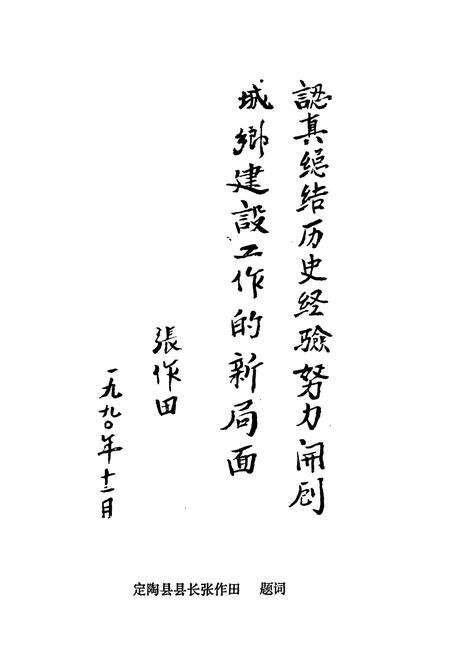 認真總结历史经驗努力開創
城鄉建設工作的新局面
張作田
一九九〇年十二月
定陶县县长张作田 题词